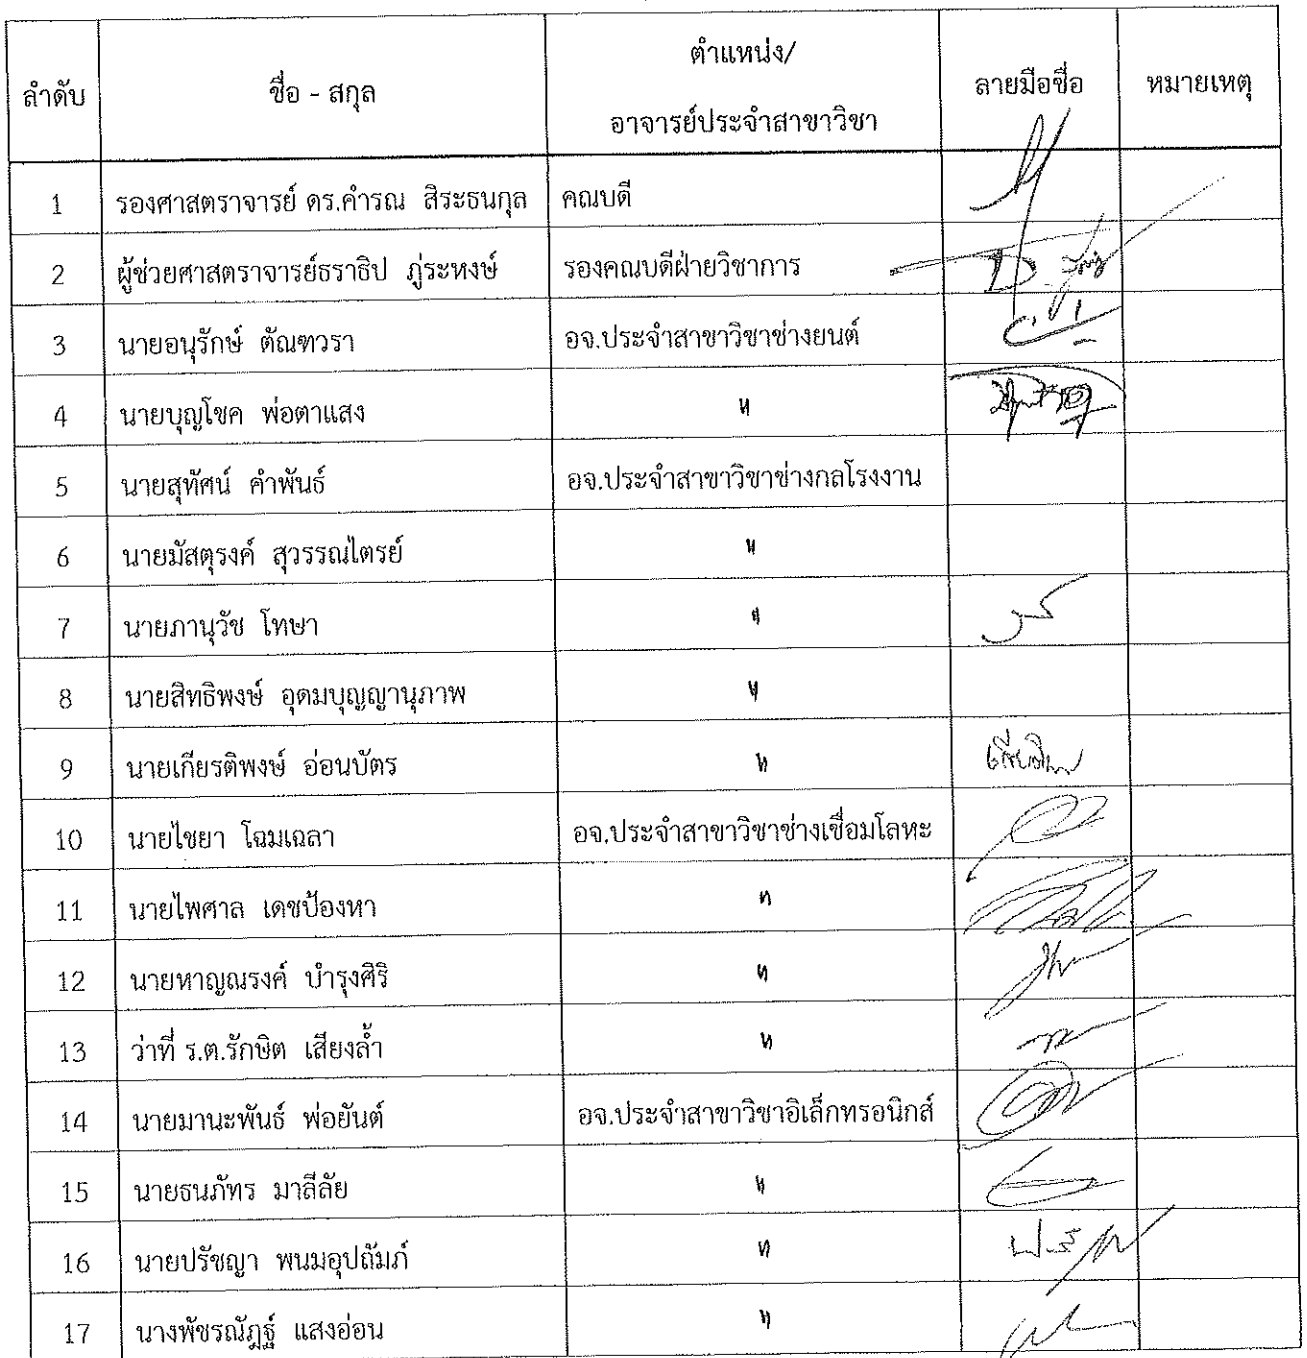 ลำดับ ชื่อ - สกุล ตำแหน่ง/ ลายมือชื่อ หมายเหตุ
อาจารย์ประจำสาขาวิชา
1 รองศาสตราจารย์ ดร.คำรณ สิระธนกุล คณบดี
2 ผู้ช่วยศาสตราจารย์ธราธิป ภู่ระหงษ์ รองคณบดีฝ่ายวิชาการ
3 นายอนุรักษ์ ตัณฑวรา อจ.ประจำสาขาวิชาช่างยนต์
4 นายบุญโชค พ่อตาแสง "
5 นายสุทัศน์ คำพันธ์ อจ.ประจำสาขาวิชาช่างกลโรงงาน
6 นายมัสตุรงค์ สุวรรณไตรย์ "
7 นายภานุวัช โทษา "
8 นายสิทธิพงษ์ อุดมบุญญานุภาพ "
9 นายเกียรติพงษ์ อ่อนบัตร "
10 นายไชยา โฉมเฉลา อจ.ประจำสาขาวิชาช่างเชื่อมโลหะ
11 นายไพศาล เดชป้องหา "
12 นายหาญณรงค์ บำรุงศิริ "
13 ว่าที่ ร.ต.รักษิต เสียงล้ำ "
14 นายมานะพันธ์ พ่อยันต์ อจ.ประจำสาขาวิชาอิเล็กทรอนิกส์
15 นายธนภัทร มาลีลัย "
16 นายปรัชญา พนมอุปถัมภ์ "
17 นางพัชรณัฎฐ์ แสงอ่อน "